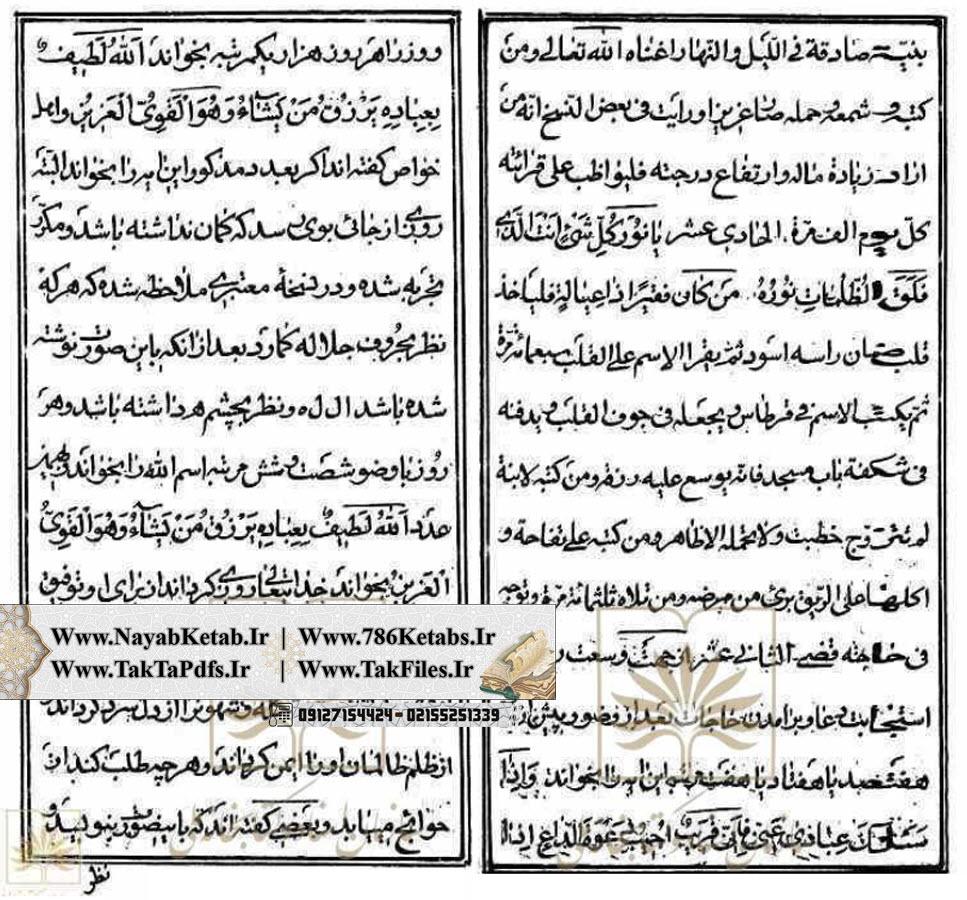 بنیة صادقة فی اللیل والنهار اغناه الله تعالی ومن
کتبه فی شمعة وحمله صار عزیزا ورایت فی بعض النسخ انه من
اراد زیادة ماله وارتفاع درجته فلیواظب علی قرائته
کل یوم الف مرة. الحادی عشر یا نُورَ کُلِّ شَیْءٍ اَنْتَ الَّذی
فَلَقَ الظُلُماتِ نُورُهُ. من کان فقیرًا ذا عیالٍ فلیأخذ
قلب راسه اسود ثم یقرا الاسم علی القلب سبعمائة مرة
ثم یکتب الاسم فی قرطاس ویجعله فی جوف القلب ویدفنه
فی باب مسجد فانه یوسع علیه رزقه ومن کتبه لابنة
لم تتزوج خطبت ولا یحمله الا طاهر ومن کتبه علی تفاحة و
اکلها علی الریق برئ من مرضه ومن تلاه ثلثمائة مرة وتوجه
فی حاجته قضی الثانی عشر از جهت وسعت
استجابت دعا و برآمدن حاجات بعد از وضو پیش از
هفتصد یا هفتاد یا هفت مرتبه این اسم را بخواند وَاِذا
سَئَلَکَ عِبادی عَنّی فَاِنّی قَریبٌ اُجیبُ دَعْوَةَ الدّاعِ اِذا
و روز را هر روز هزار و یکمرتبه بخواند اَللّهُ لَطیفٌ
بِعِبادِهِ یَرْزُقُ مَنْ یَشاءُ وَهُوَ الْقَوِیُّ الْعَزیزُ واهل
خواص گفته اند اگر بعدد مذکور این ایه را بخواند البته
روزی از جائی بوی رسد که گمان نداشته باشد ومکرر
تجربه شده و در نسخهٔ معتبری ملاحظه شده که هر که
نظر بحروف جلاله گمارد بعد از انکه باین صورت نوشته
شده باشد ال ل ه و نظر بچشم هر داشته باشد و هر
روز با وضو شصت و شش مرتبه اسم الله را بخواند و بهمین
عدد اَللّهُ لَطیفٌ بِعِبادِهِ یَرْزُقُ مَنْ یَشاءُ وَهُوَ الْقَوِیُّ
الْعَزیز بخواند خدایتعالی روزی گرداند از برای او توفیق
وشهوت را از دل سرد گرداند
از ظلم ظالمان او را ایمن گرداند و هر چه طلب کند از
حوائج میابد و بعضی گفته اند که باینصورت بنویسد و
نظر
Www.NayabKetab.Ir | Www.786Ketabs.Ir
Www.TakTaPdfs.Ir | Www.TakFiles.Ir
09127154424 - 02155251339